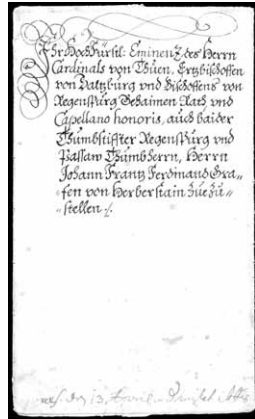 Ihr Hochfürstl: Eminenz des Herrn
Cardinals von Thuen. Ertzbischoffen
von Saltzburg vnd Bischoffens von
Regenspurg Gehaimen Rath vnd
Capellano honoris, auch baider
Thumbstiffter Regenspurg vnd
Passaw Thumbherrn, Herrn
Johann Frantz Ferdinand Gra„
„fen von Herberstain zuezu„
„stellen ./.
13. April